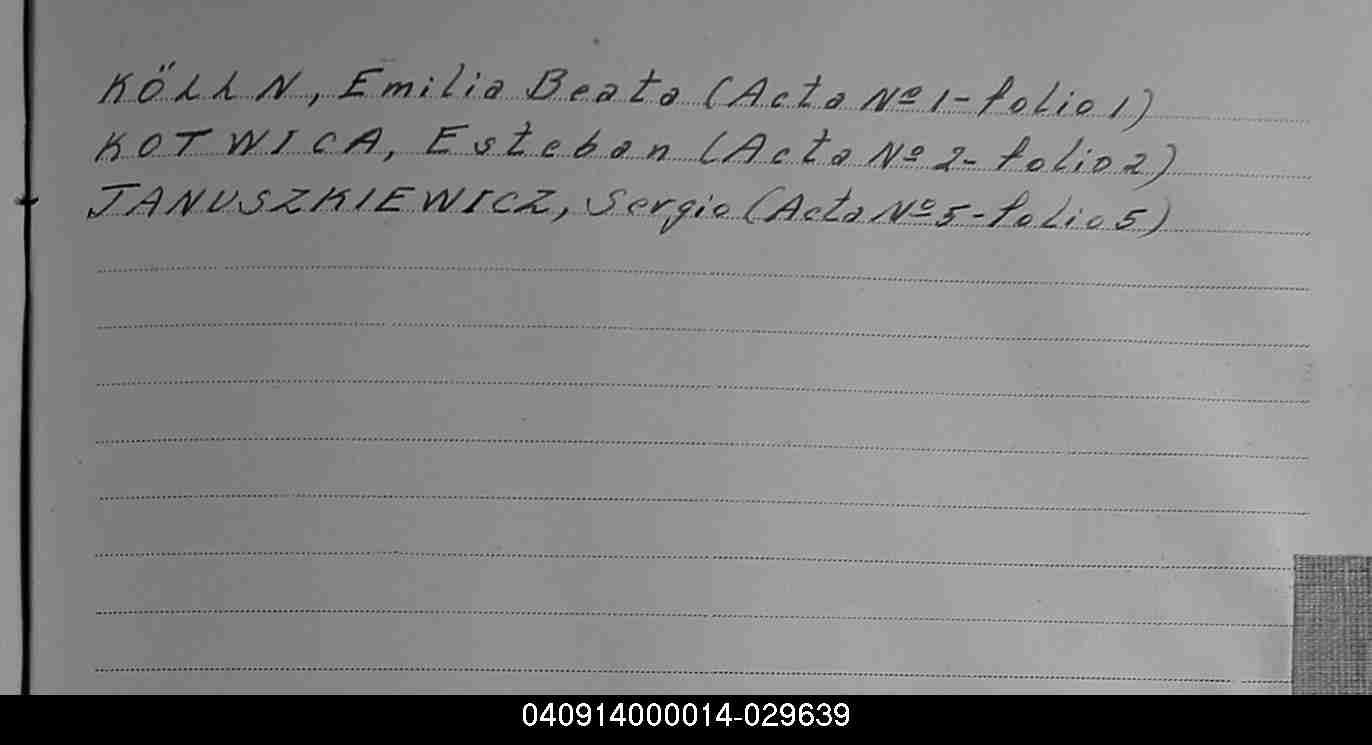 KÖLLN, Emilia Beata (Acta Nº 1-folio 1)
KOTWICA, Esteban (Acta Nº 2-folio 2)
JANUSZKIEWICZ, Sergio (Acta Nº 5-folio 5)
040914000014-029639